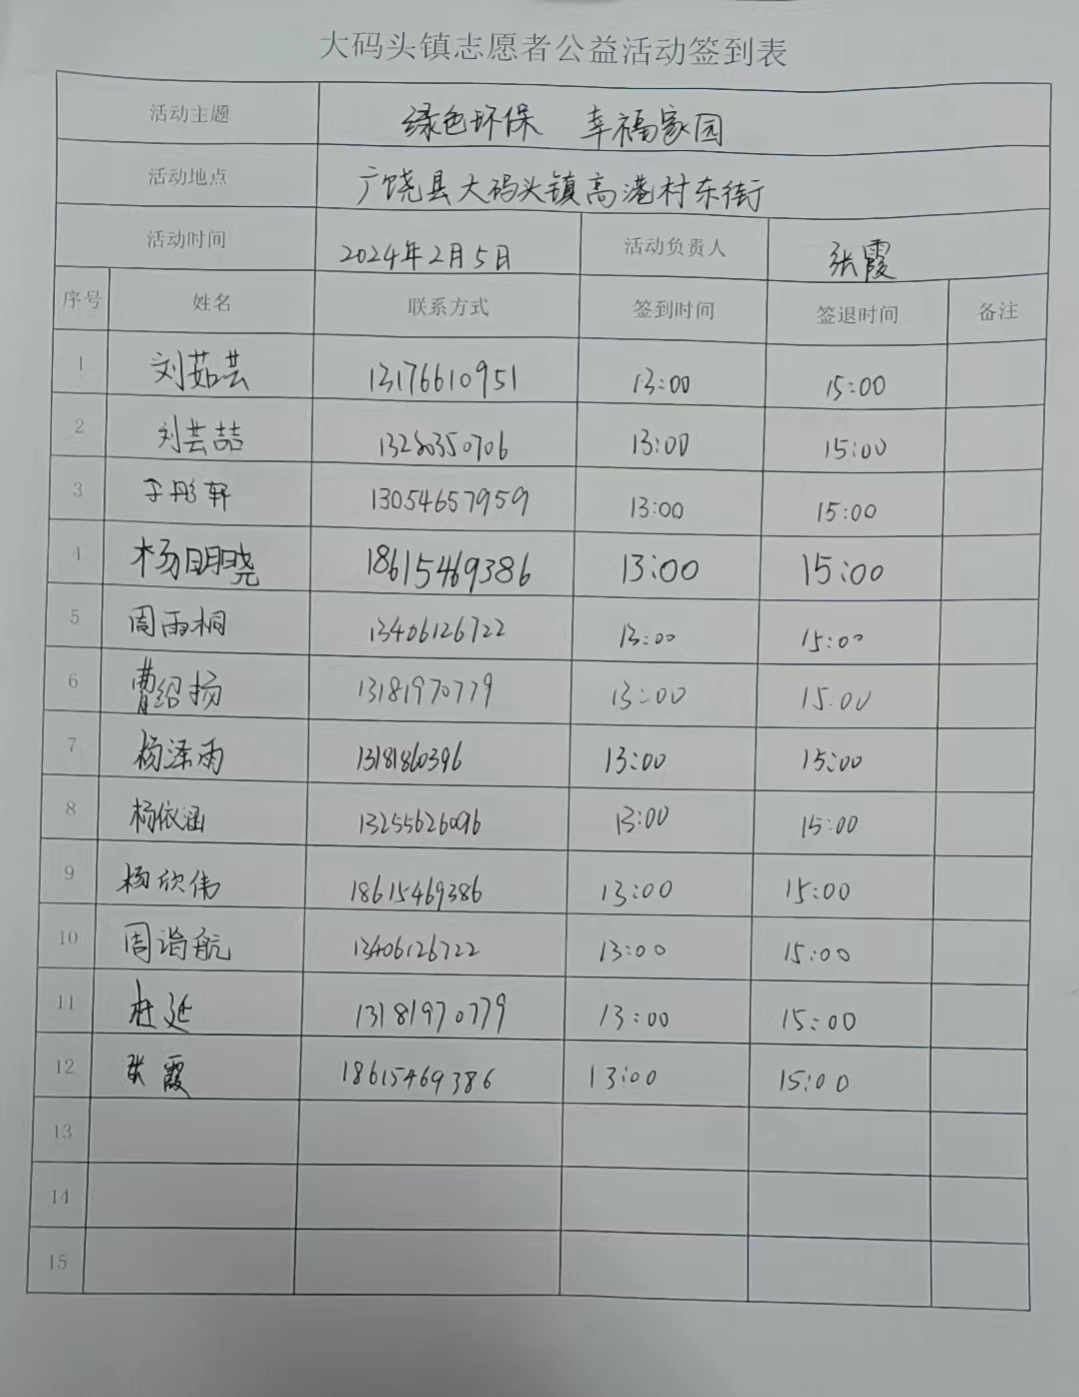 大码头镇志愿者公益活动签到表
活动主题 绿色环保 幸福家园
活动地点 广饶县大码头镇高港村东街
活动时间 2024年2月5日 活动负责人 张霞
序号 姓名 联系方式 签到时间 签退时间 备注
1 刘茹芸 13176610951 13:00 15:00
2 刘芸喆 13280350706 13:00 15:00
3 于彤轩 13054657959 13:00 15:00
4 杨明晓 18615469386 13:00 15:00
5 周雨桐 13406126722 13:00 15:00
6 曹绍扬 13181970779 13:00 15:00
7 杨泽雨 13181860396 13:00 15:00
8 杨依涵 13255626096 13:00 15:00
9 杨欣伟 18615469386 13:00 15:00
10 周诣航 13406126722 13:00 15:00
11 杜延 13181970779 13:00 15:00
12 张霞 18615469386 13:00 15:00
13
14
15